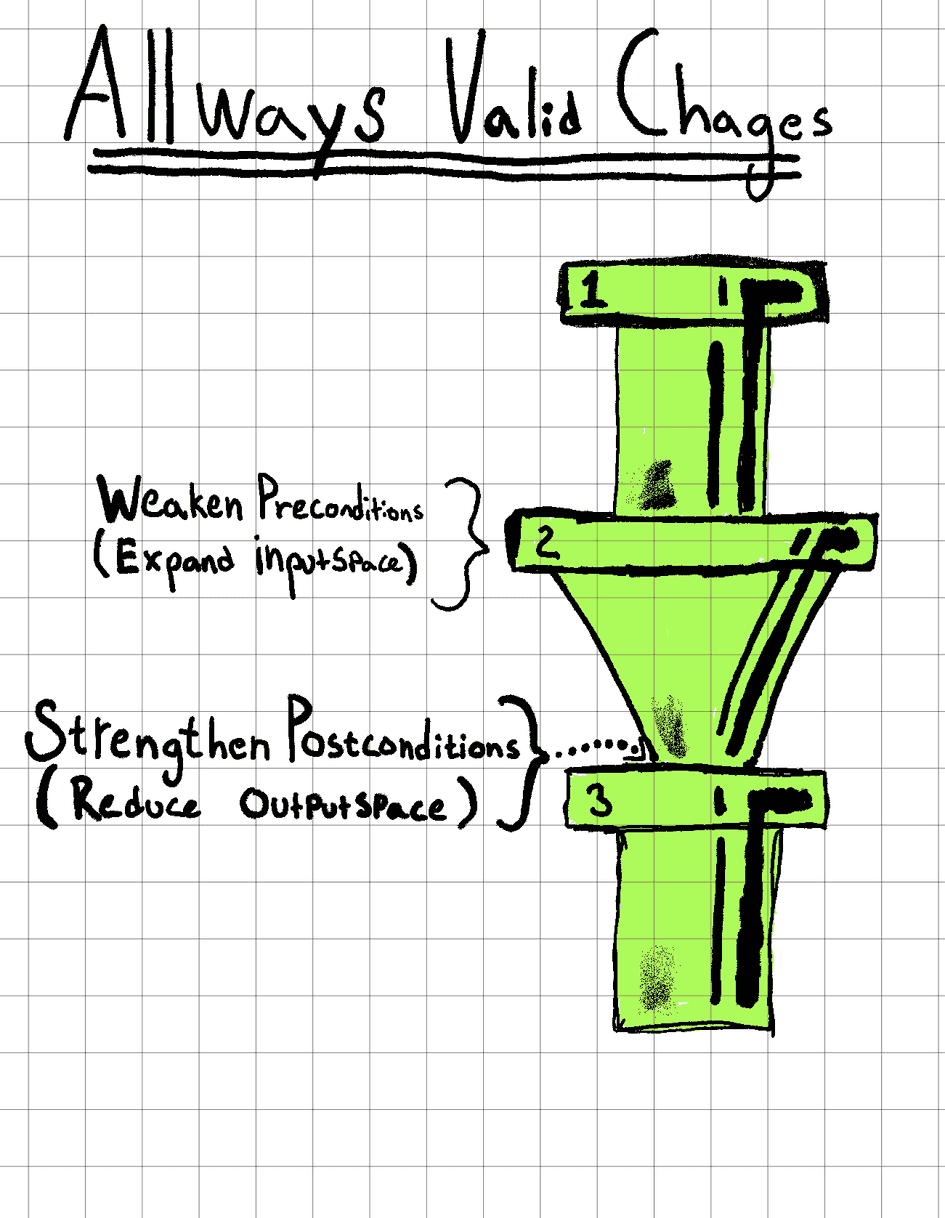 Allways Valid Chages
1
Weaken Preconditions
(Expand inputspace)
2
Strengthen Postconditions
(Reduce Outputspace)
3